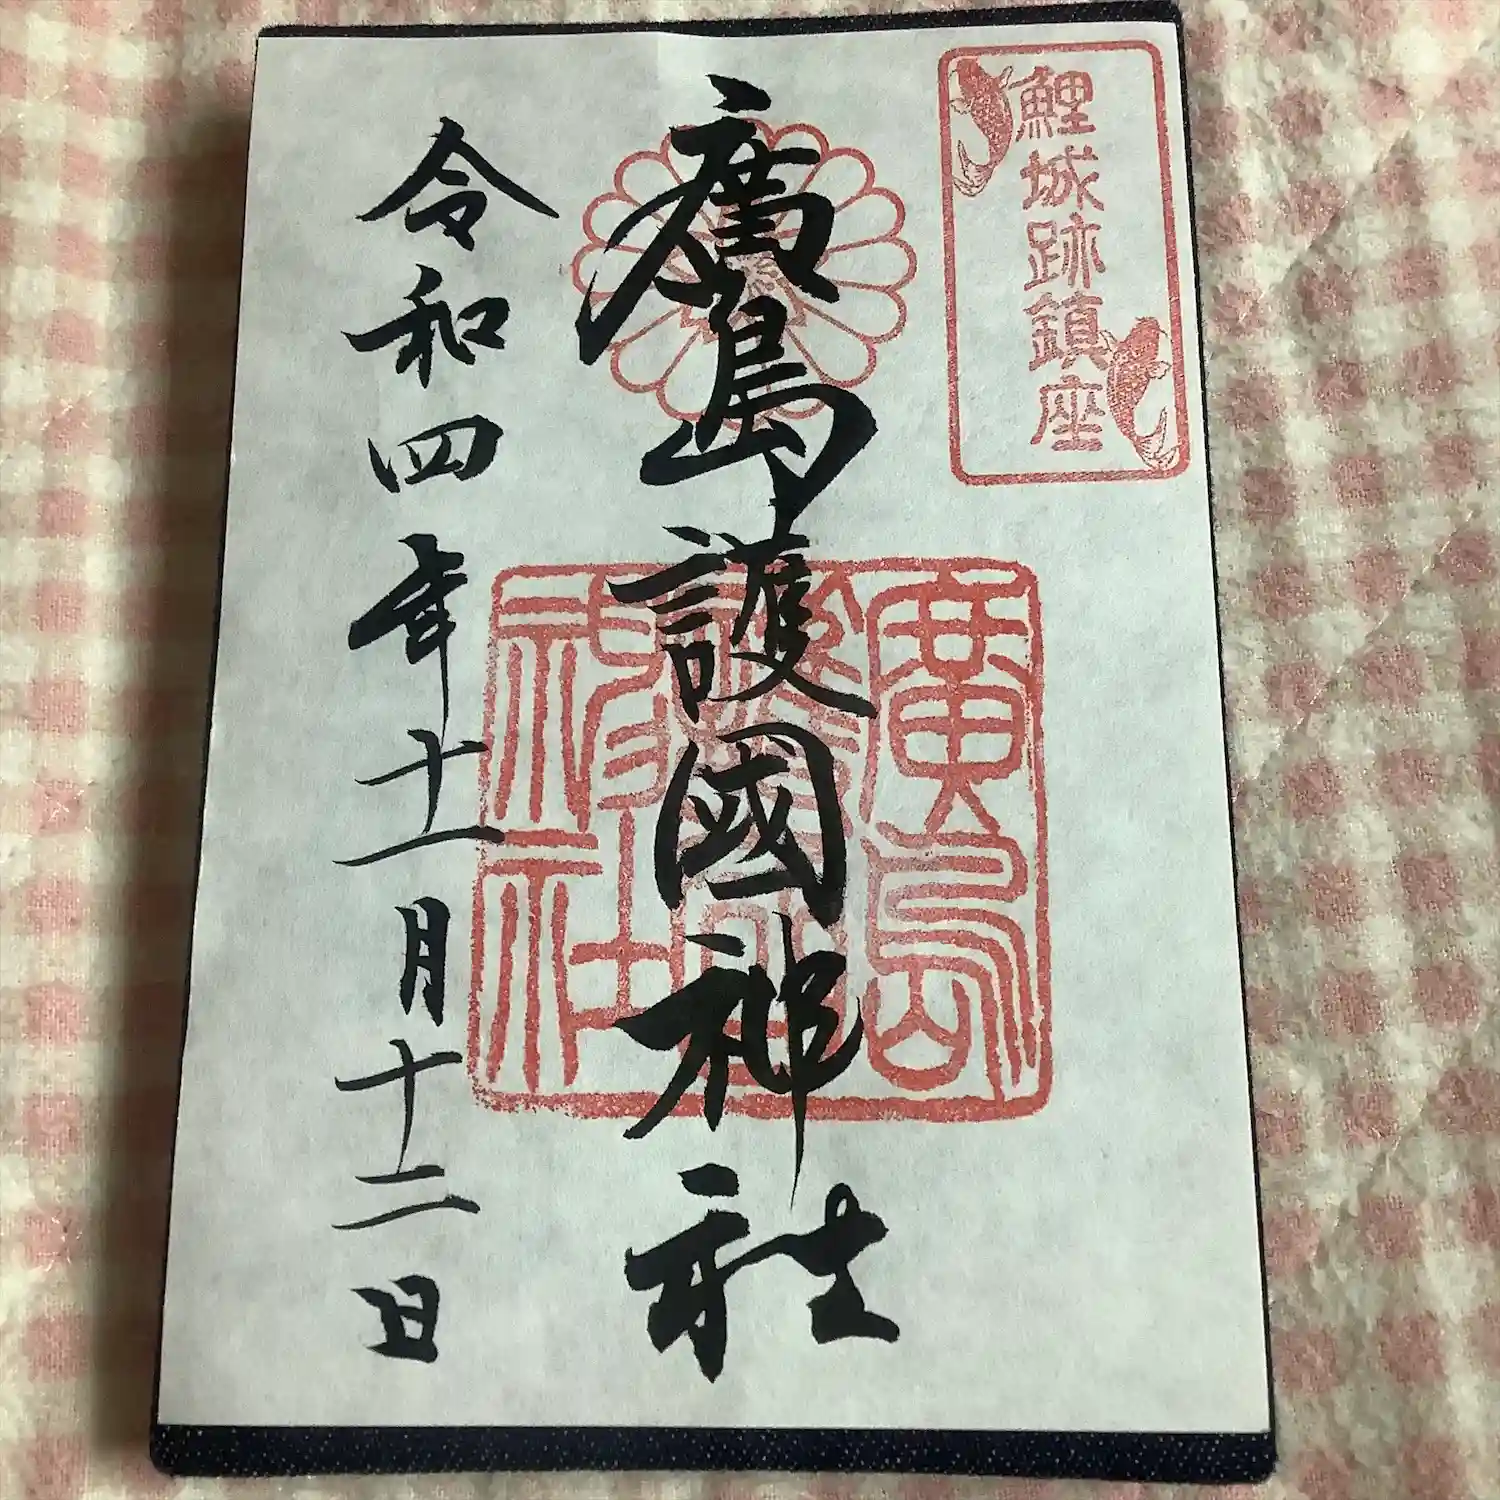 鯉城跡鎮座
廣島護國神社
廣島
護國
神社
令和四年十一月十二日